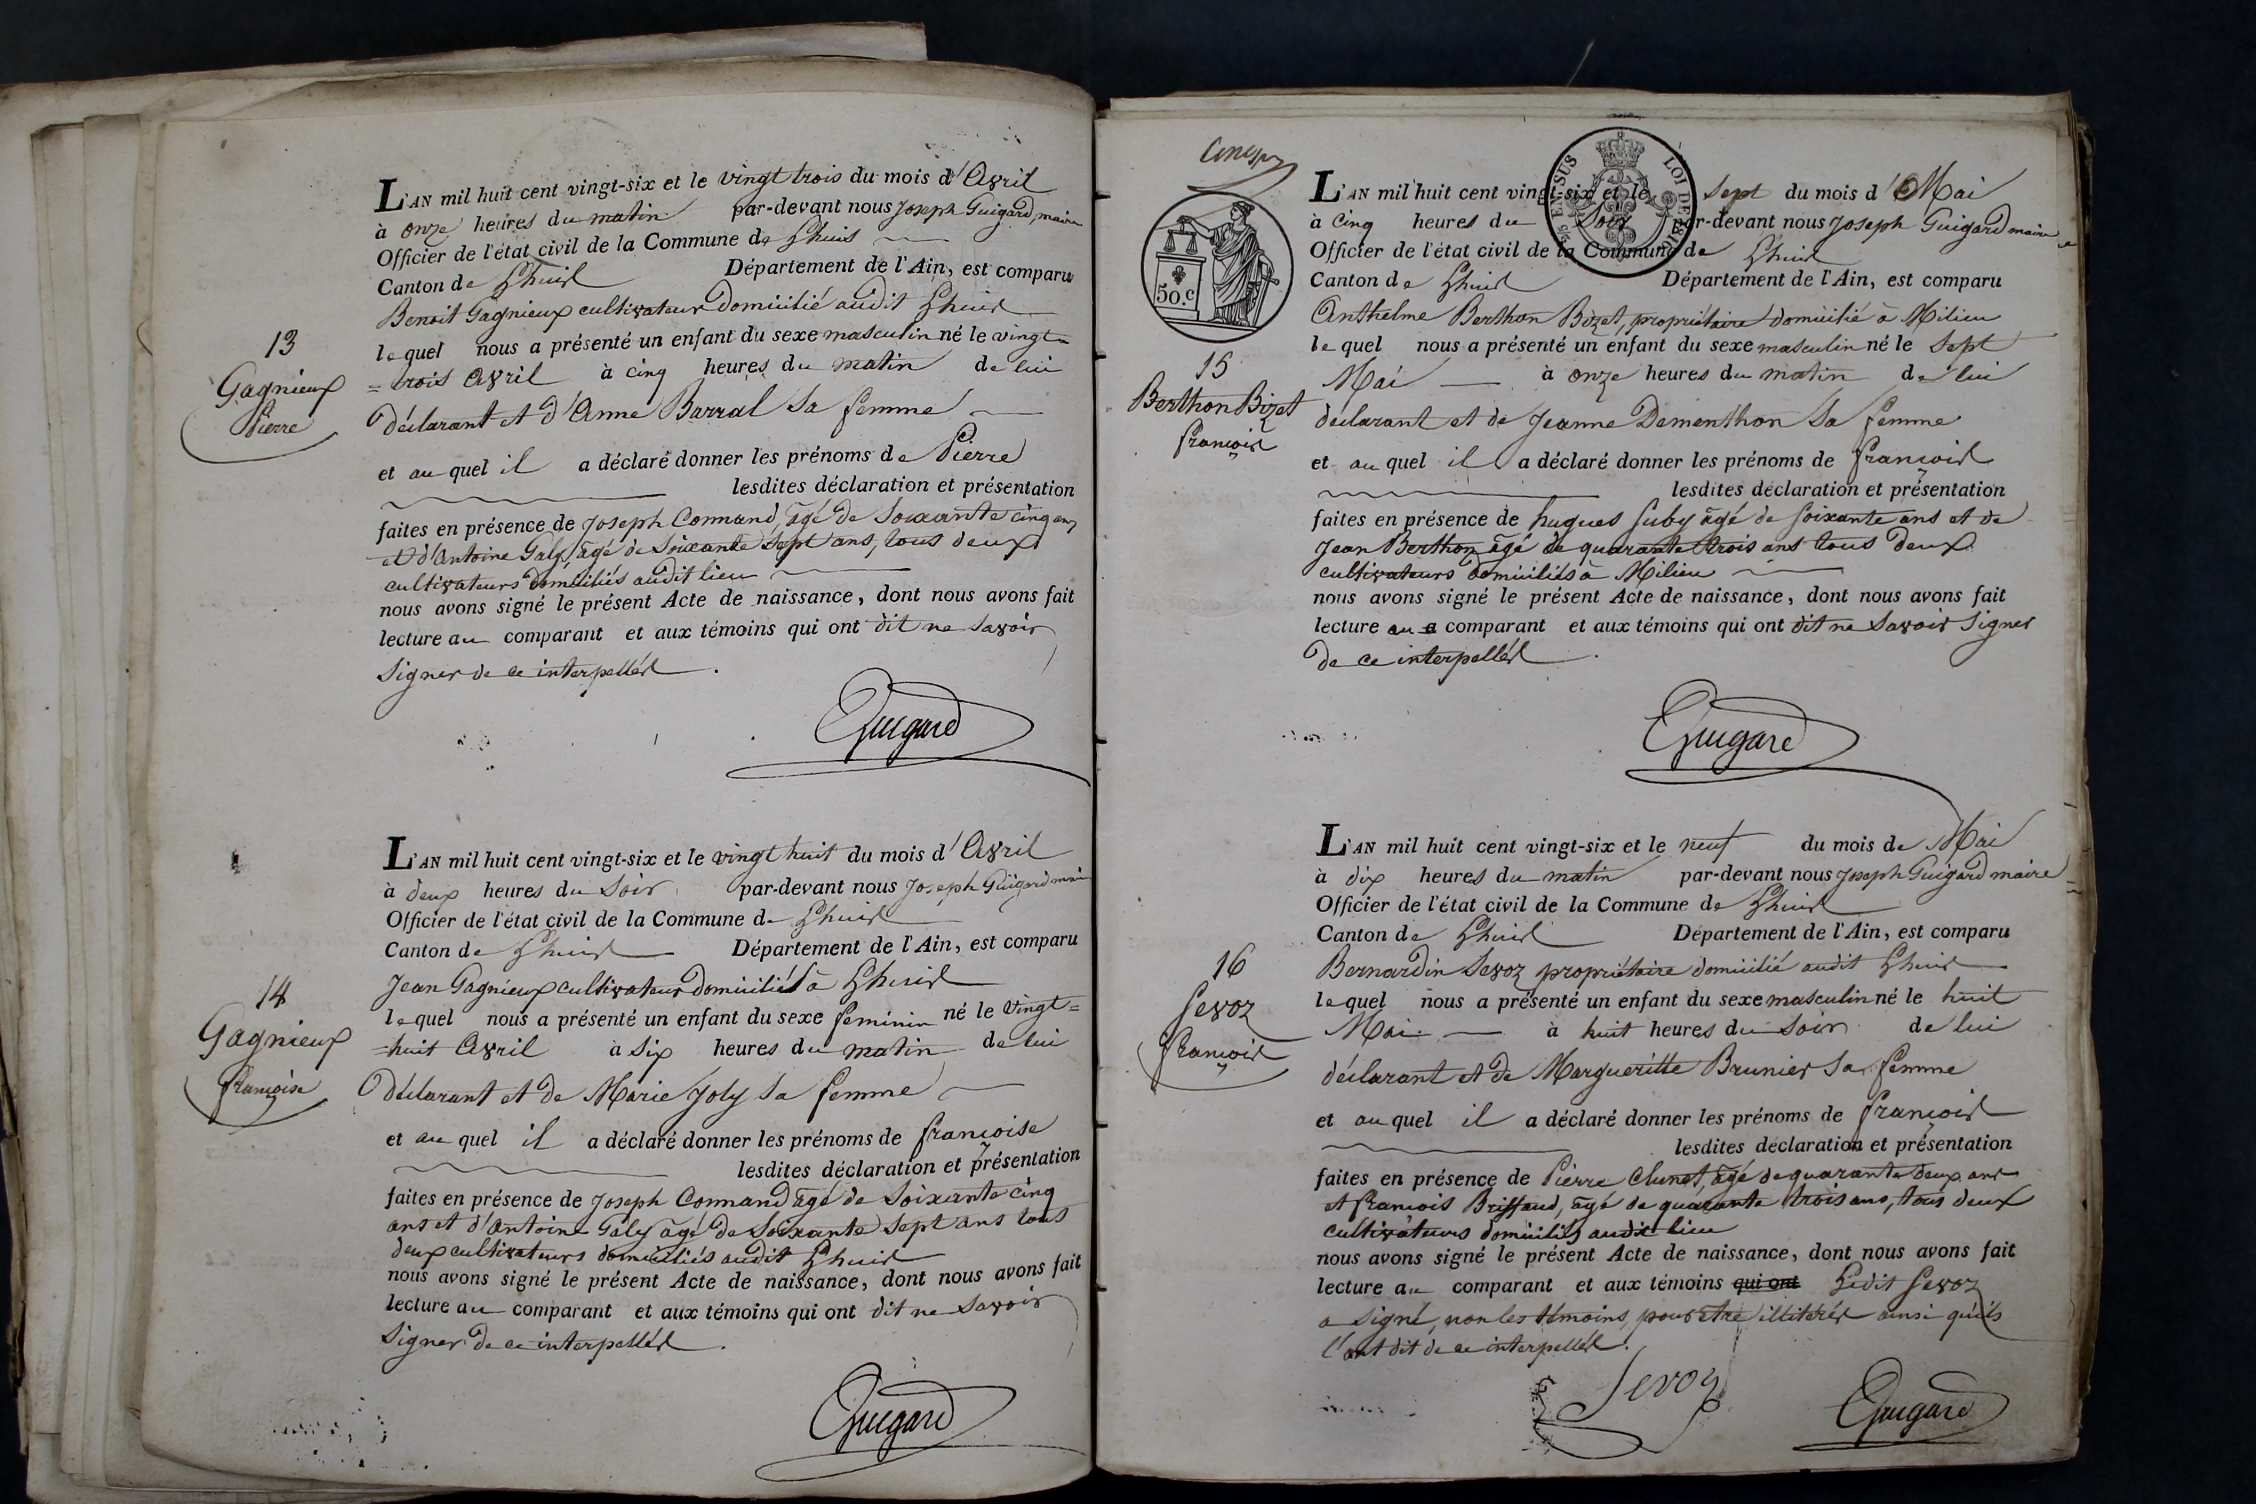 L'AN mil huit cent vingt-six et le vingt trois du mois d'Avril
à onze heures du matin par-devant nous Joseph Guigard, maire
Officier de l'état civil de la Commune de Lhuis
Canton de Lhuis Département de l'Ain, est comparu
Benoit Gagnieux cultivateur domicilié audit Lhuis
lequel nous a présenté un enfant du sexe masculin né le vingt=
13
Gagnieux
Pierre
=trois Avril à cinq heures du matin de lui
déclarant et d'Anne Barral sa femme
et auquel il a déclaré donner les prénoms de Pierre
lesdites déclaration et présentation
faites en présence de Joseph Connand, âgé de soixante cinq ans
et d'Antoine Galy, âgé de soixante sept ans, tous deux
cultivateurs domiciliés audit lieu
nous avons signé le présent Acte de naissance, dont nous avons fait
lecture au comparant et aux témoins qui ont dit ne savoir
signer de ce interpellés.
Guigard
L'AN mil huit cent vingt-six et le vingt huit du mois d'Avril
à deux heures du soir par-devant nous Joseph Guigard maire
Officier de l'état civil de la Commune de Lhuis
Canton de Lhuis Département de l'Ain, est comparu
Jean Gagnieux cultivateur domicilié à Lhuis
14
Gagnieux
françoise
lequel nous a présenté un enfant du sexe feminin né le vingt=
=huit Avril à six heures du matin de lui
déclarant et de Marie Joly sa femme
et au quel il a déclaré donner les prénoms de françoise
lesdites déclaration et présentation
faites en présence de Joseph Connand âgé de soixante cinq
ans et d'antoine Galy âgé de soixante sept ans tous
deux cultivateurs domiciliés audit Lhuis
nous avons signé le présent Acte de naissance, dont nous avons fait
lecture au comparant et aux témoins qui ont dit ne savoir
signer de ce interpellés.
Guigard
EN SUS
LOI DE
50.c
L'AN mil huit cent vingt-six et le sept du mois d'Mai
à cinq heures du soir par-devant nous Joseph Guigard maire
Officier de l'état civil de la Commune de Lhuis
Canton de Lhuis Département de l'Ain, est comparu
Anthelme Berthon Bizet, propriétaire domicilié à Milieu
lequel nous a présenté un enfant du sexe masculin né le sept
15
Berthon Bizet
françois
Mai à onze heures du matin de lui
déclarant et de Jeanne Dementhon sa femme
et au quel il a déclaré donner les prénoms de françois
lesdites déclaration et présentation
faites en présence de hugues Suby âgé de soixante ans et de
Jean Berthon âgé de quarante trois ans tous deux
cultivateurs domiciliés à Milieu
nous avons signé le présent Acte de naissance, dont nous avons fait
lecture au comparant et aux témoins qui ont dit ne savoir signer
de ce interpellés.
Guigard
L'AN mil huit cent vingt-six et le neuf du mois de Mai
à dix heures du matin par-devant nous Joseph Guigard maire
Officier de l'état civil de la Commune de Lhuis
Canton de Lhuis Département de l'Ain, est comparu
16
Sevoz
françois
Bernardin Sevoz propriétaire domicilié audit Lhuis
lequel nous a présenté un enfant du sexe masculin né le huit
Mai à huit heures du soir de lui
déclarant et de Margueritte Brunier sa femme
et auquel il a déclaré donner les prénoms de françois
lesdites déclaration et présentation
faites en présence de Pierre Clunet, âgé de quarante deux ans
et françois Briffaud, âgé de quarante trois ans, tous deux
cultivateurs domiciliés audit lieu
nous avons signé le présent Acte de naissance, dont nous avons fait
lecture au comparant et aux témoins qui ont Ledit Sevoz
a signé, non les témoins, pour être illitérés ainsi qu'ils
l'ont dit de ce interpellés.
Sevoz
Guigard